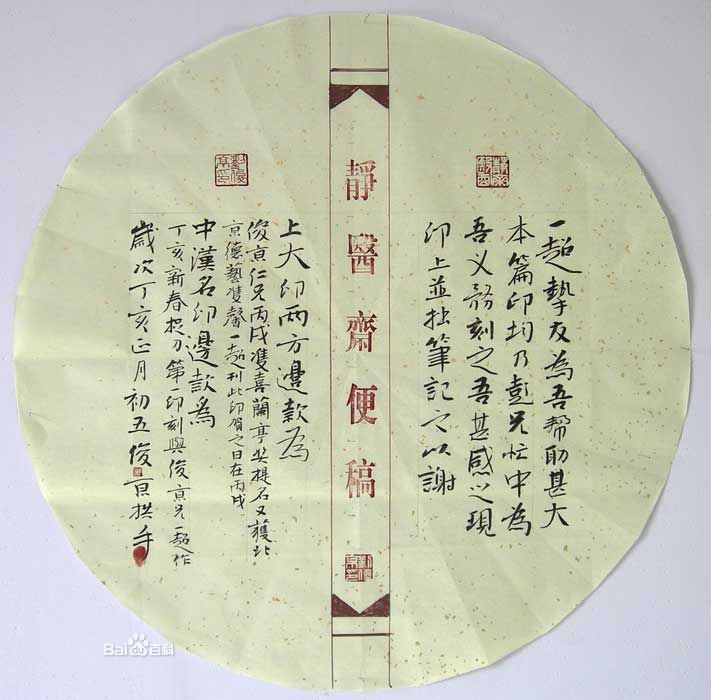 一超摯友為吾幫助甚大
本篇印均乃彭兄忙中為
吾义務刻之吾甚感之現
印上並拙筆記之以謝
靜醫齋便稿
劉俊京印
上大印兩方邊款為
俊京仁兄丙戌雙喜蘭亭奖提名又獲北
京德藝雙馨一超刊此印賀之日在丙戌
中漢名印邊款為
丁亥新春捉刀第一印刻與俊京兄一超作
歲次丁亥正月初五俊京拱手
Bai百科